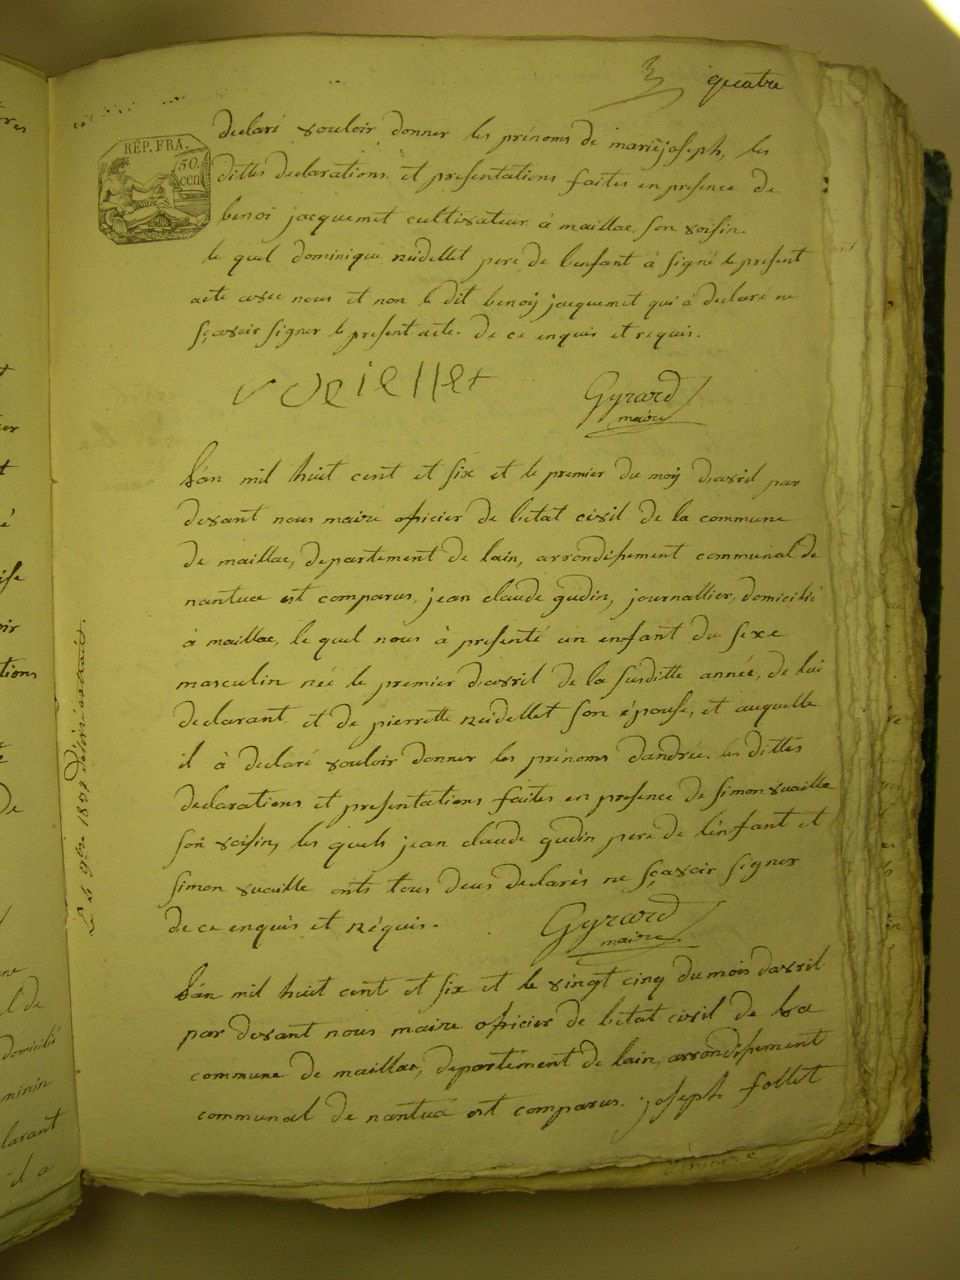 quatre
REP. FRA.
50
cen
declaré vouloir donner les prénoms de marie joseph, les
dittes declarations et presentations faites en presence de
benoi jacquemet cultivateur à maillac son voisin.
le quel dominique Rudellet pere de lenfant à signé le present
acte avec nous et non le dit benoij jacquemet qui à declaré ne
sçavoir signer le present acte. de ce enquis et requis.
Gyrard
maire
L'án mil huit cent et six et le premier du mois davril par
devant nous maire oficier de l'etat civil de la commune
de maillac, departement de lain, arrondissement communal de
nantua est comparus, jean claude gudin, journallier, domicilié
à maillac, le quel nous à presenté un enfant du sexe
masculin née le premier davril de la susditte année, de lui
declarant et de pierrette Rudellet son épouse, et auquelle
il à declaré vouloir donner les prénoms dandré. les dittes
declarations et presentations faites en presence de simon vuaille
son voisin, les quels jean claude gudin pere de l'enfant et
simon vuaille onts tous deus declarés ne sçavoir signer
de ce enquis et Réquis.
Gyrard
maire
L'án mil huit cent et six et le vingt cinq du mois davril
par devant nous maire oficier de l'etat civil de la
commune de maillac, departement de lain, arrondissement
communal de nantua est comparus. joseph follet